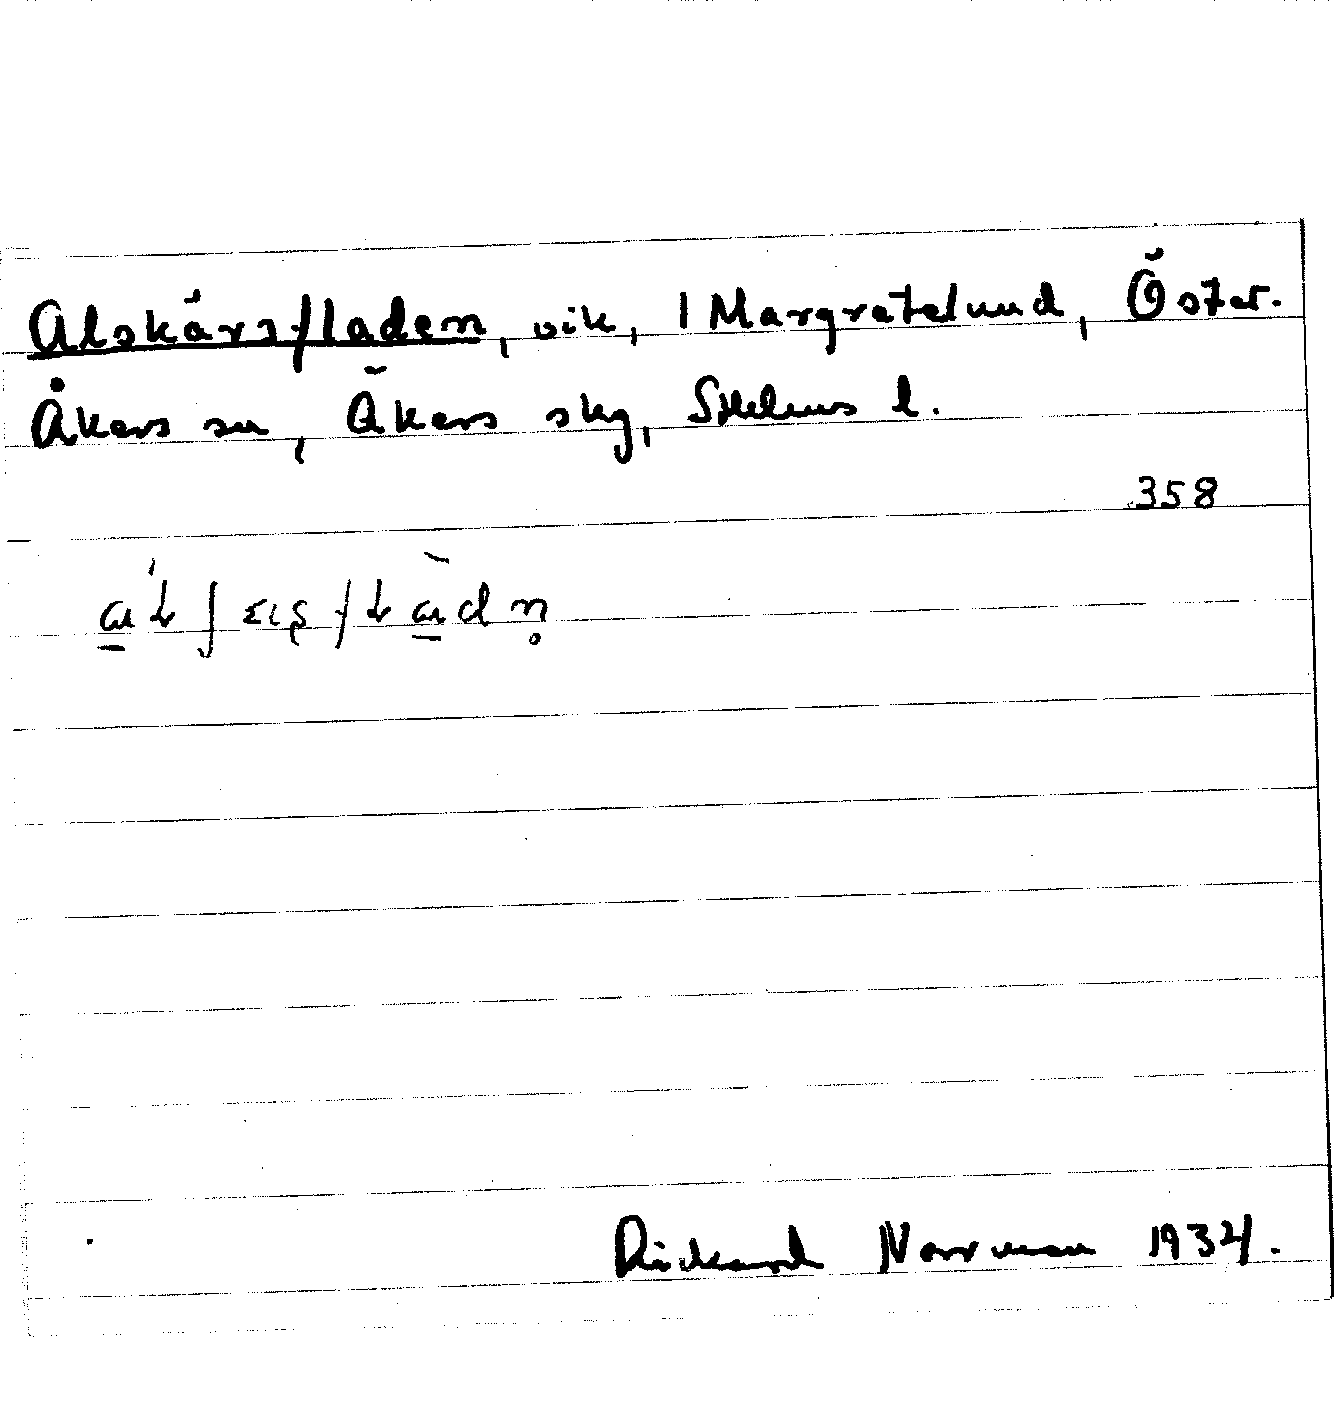 Alskärsfladen, vik, 1 Margretelund, Öster-
Åkers sn, Åkers skg, Sthlms l.
358
Rickard Norrman 1934.